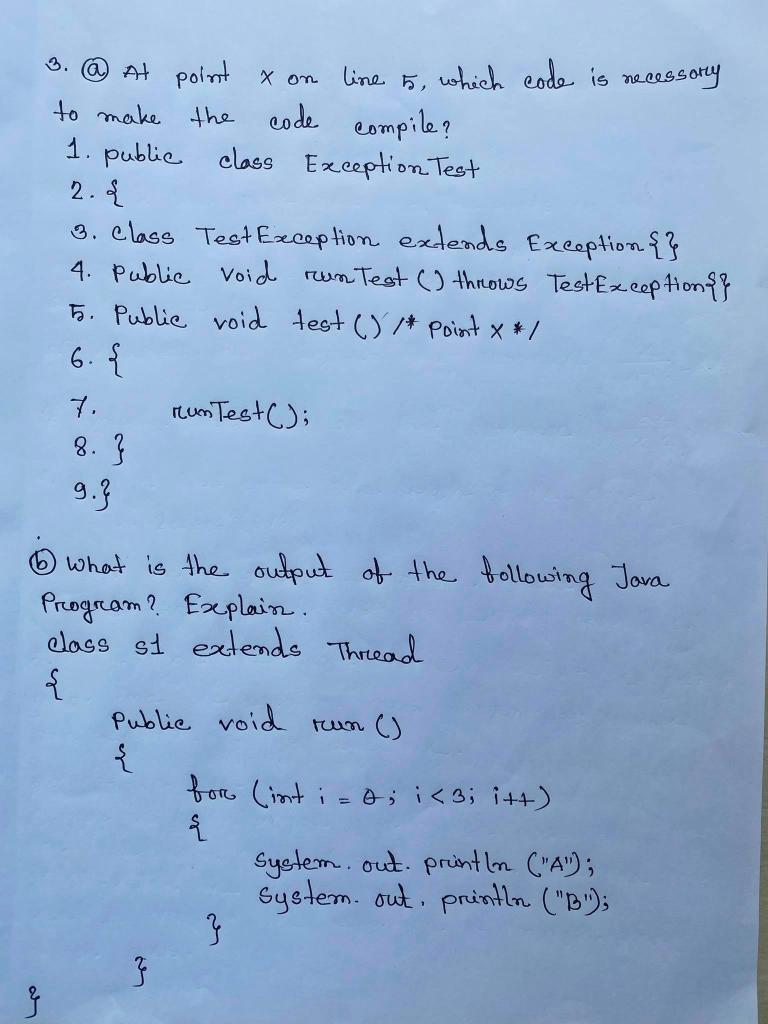 3. (a) At point X on line 5, which code is necessary
to make the code compile?
1. public class ExceptionTest
2. {
3. class TestException extends Exception {}
4. Public void runTest () throws TestException {}
5. Public void test () /* Point X */
6. {
7. runTest();
8. }
9. }
(b) What is the output of the following Java
Program? Explain.
class s1 extends Thread
{
Public void run ()
{
for (int i = 0; i < 3; i++)
{
System. out. println ("A");
System. out. println ("B");
}
}
}